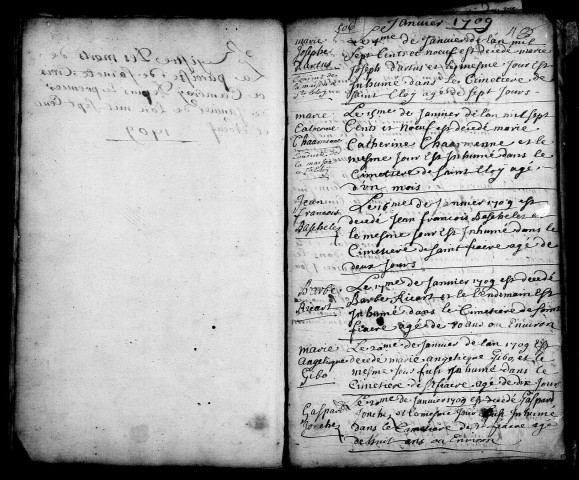 Registre Des morts de
La paroisse de Sainte Croix
de Cambray Pour le premier
de Janvier de l'an mil sept Cens
et Noeuf
1709
Janvier 1709
marie
Josephe
Dartus
Le 14me de Janvier de lan mil
Sept Cent et Noeuf est decedé marie
Joseph Dartus et le mesme Jour est
Inhumé dans le Cimetiere de
Saint Eloy agé de Sept Jours
marie
Catherine
Chaamenne
Le 15me de Janvier de lan mil sept
Cents et Noeuf est decedé marie
Catherine Chaamenne et le
mesme Jour Est Inhumé dans le
Cimetiere de Saint Eloy agé
d'vn mois
Jean
Francois
Basheles
Le 16me de Janvier 1709 est
decedé Jean francois Basheles et
le mesme Jour est Inhumé dans le
Cimetiere de Saint fiacre agé de
deux Jours
Barbe
Ricart
Le 17me de Janvier 1709 est decedé
Barbe Ricart et le lendemain est
Inhumé dans le Cimetiere de Saint
fiacre agé de 70 ans ou Environ
marie
Angelique
Gibo
Le 20me de Janvier de lan 1709 Est
decedé marie angelique Gibo et le
mesme Jour fust Inhumé dans le
Cimetiere de St fiacre agé de dix Jours
Gaspart
Jonche
Le 21me de Janvier 1709 est decedé Gaspart
Jonche et le mesme Jour fust Inhumé
dans le Cimetiere de St fiacre agé
de huit ans ou Environ